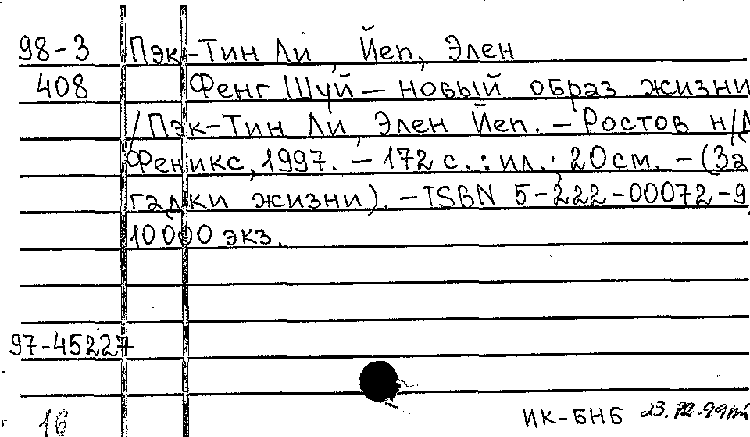 98-3 Пэк-Тин Ли, Йеп, Элен
408 Фенг Шуй - новый образ жизни
/ Пэк-Тин Ли, Элен Йеп. - Ростов н/Д
Феникс, 1997. - 172 с. : ил. ; 20см. - (За
гадки жизни). - ISBN 5-222-00072-9.
10000 экз.
97-45227
16 ИК-БНБ